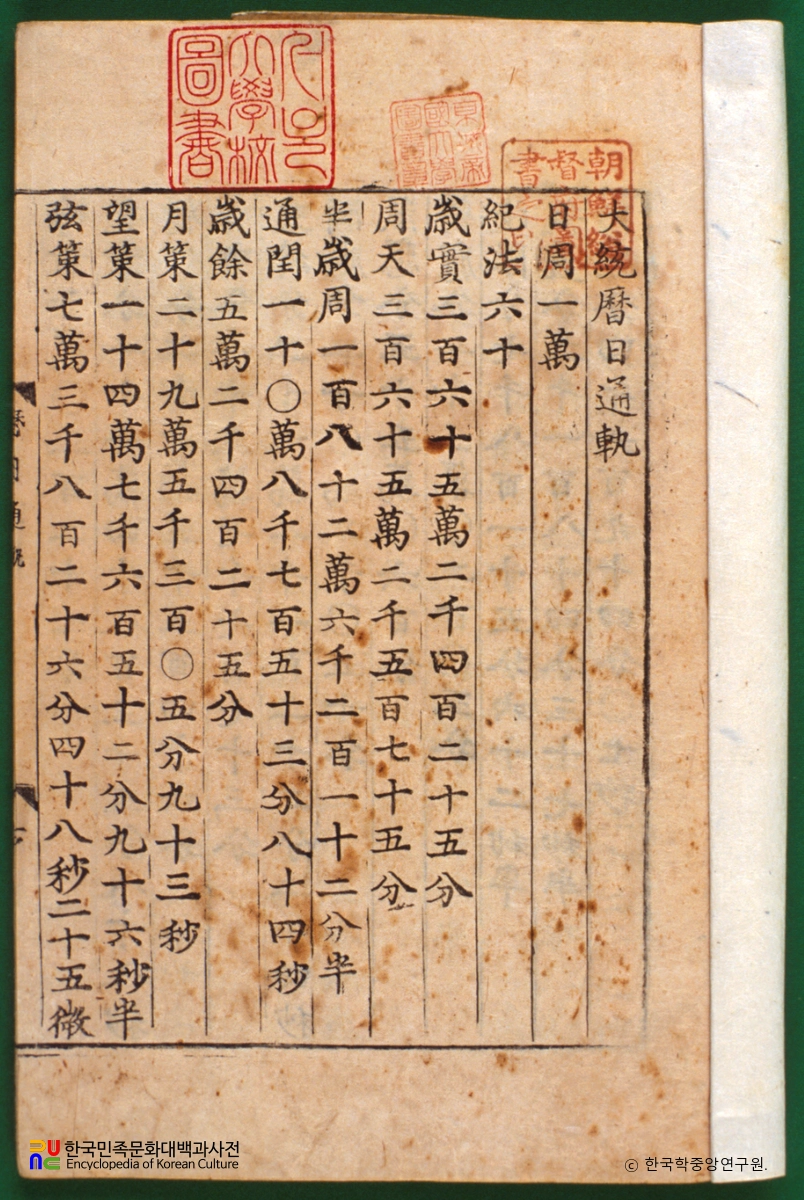 大統曆日通軌
日周一萬
紀法六十
歲實三百六十五萬二千四百二十五分
周天三百六十五萬二千五百七十五分
半歲周一百八十二萬六千二百一十二分半
通閏一十〇萬八千七百五十三分八十四秒
歲餘五萬二千四百二十五分
月策二十九萬五千三百〇五分九十三秒
望策一十四萬七千六百五十二分九十六秒半
弦策七萬三千八百二十六分四十八秒二十五微
朝鮮總
督府圖
書之印
京城帝
國大學
圖書章
大學校
圖書
한국민족문화대백과사전
Encyclopedia of Korean Culture
ⓒ 한국학중앙연구원.